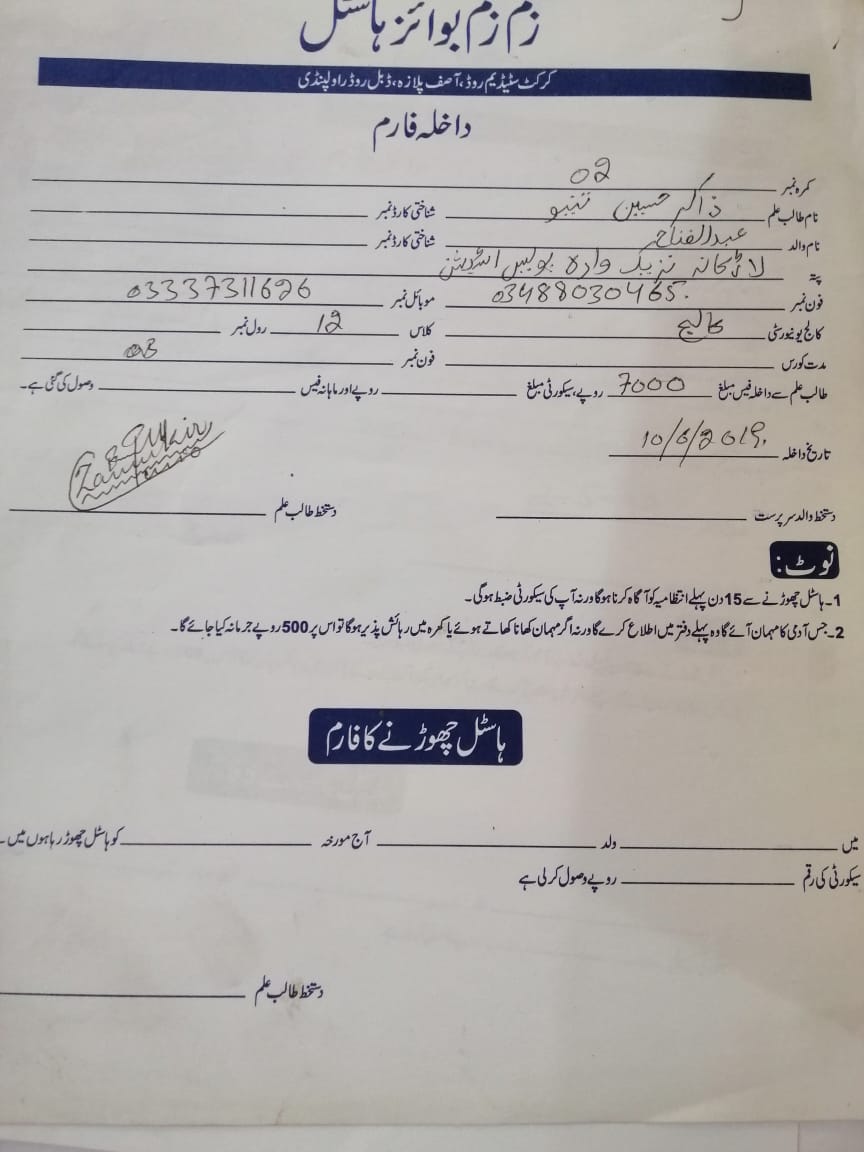 زم زم بوائز ہاسٹل
کرکٹ سٹیڈیم روڈ، آصف پلازہ، ڈبل روڈ راولپنڈی
داخلہ فارم
کمرہ نمبر 02
نام طالب علم ذاکر حسین شناختی کارڈ نمبر
نام والد عبدالفتاح شناختی کارڈ نمبر
پتہ لاڑکانہ نزدیک وارہ پولیس اسٹیشن
فون نمبر 03488030465 موبائل نمبر 03337311626
کالج یونیورسٹی کالج کلاس 12 رول نمبر
مدت کورس فون نمبر
طالب علم سے داخلہ فیس مبلغ 7000 روپے، سیکورٹی مبلغ روپے اور ماہانہ فیس وصول کی گئی ہے۔
تاریخ داخلہ 10/6/2019
دستخط والد سرپرست دستخط طالب علم
نوٹ:
1۔ ہاسٹل چھوڑنے سے 15 دن پہلے انتظامیہ کو آگاہ کرنا ہوگا ورنہ آپ کی سیکورٹی ضبط ہوگی۔
2۔ جس آدمی کا مہمان آئے گا وہ پہلے دفتر میں اطلاع کرے گا ورنہ اگر مہمان کھانا کھاتے ہوئے یا کمرہ میں رہائش پذیر ہوگا تو اس پر 500 روپے جرمانہ کیا جائے گا۔
ہاسٹل چھوڑنے کا فارم
میں ولد آج مورخہ کو ہاسٹل چھوڑ رہا ہوں میں۔
سیکورٹی کی رقم روپے وصول کر لی ہے
دستخط طالب علم